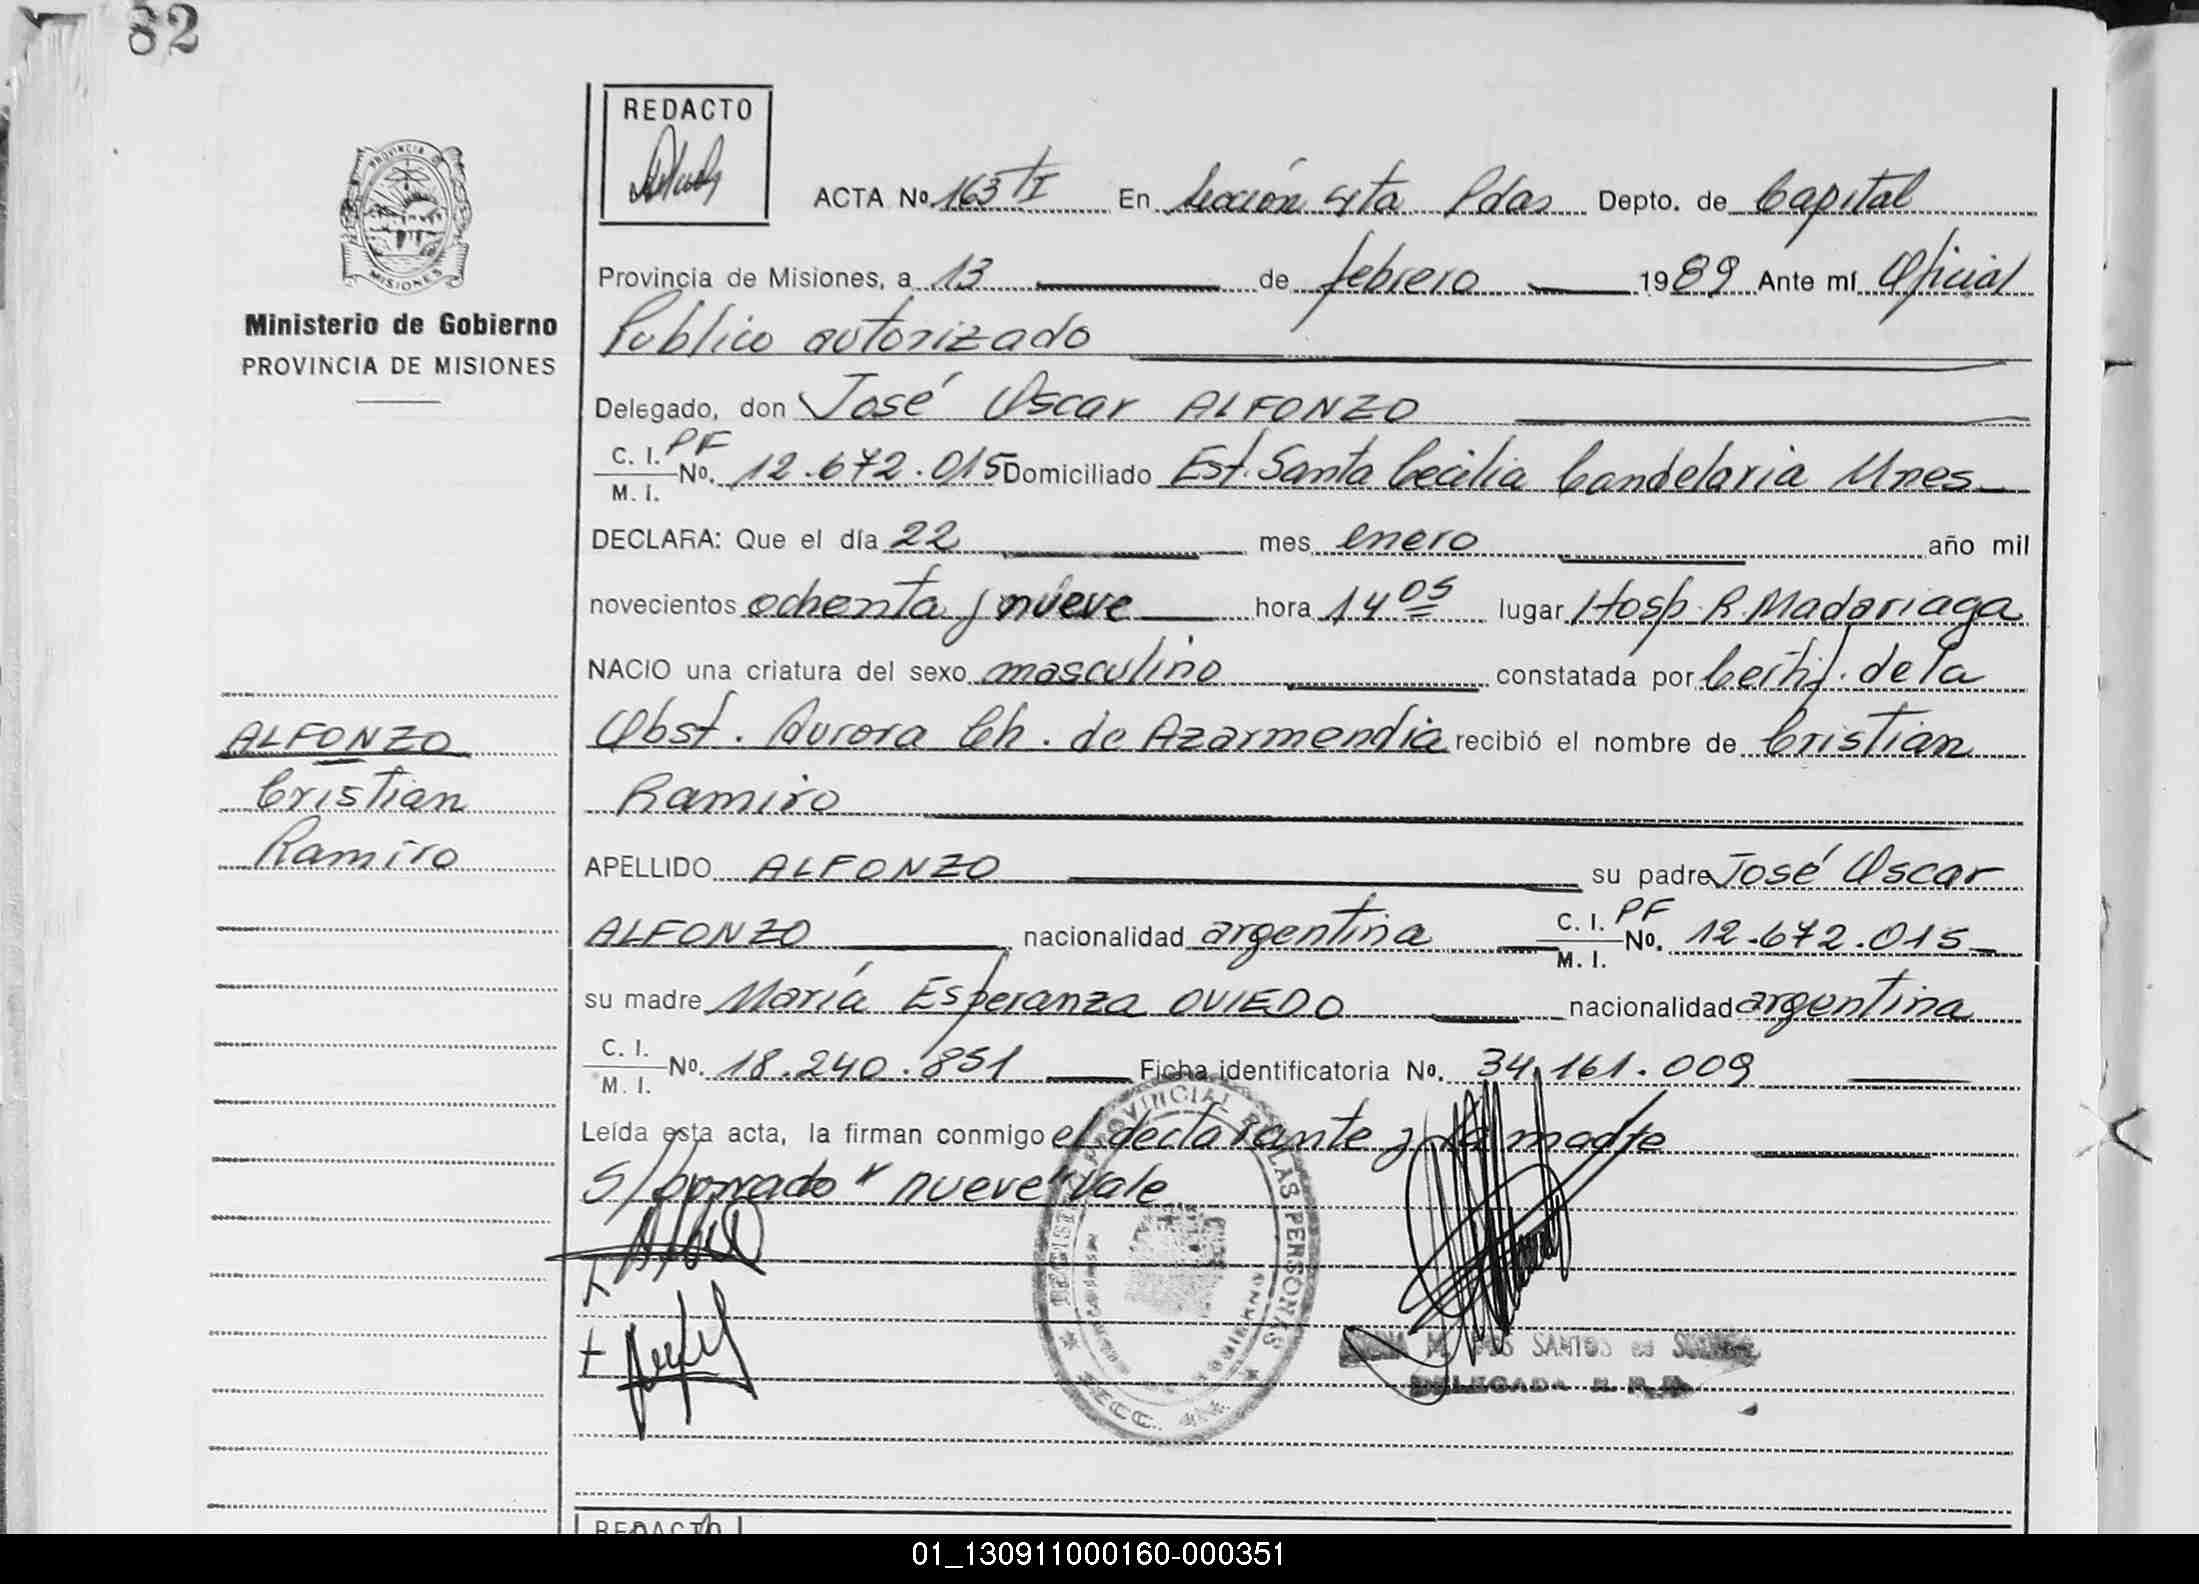 82
REDACTO
ACTA Nº 163 TI En Sección 4ta Pdas Depto. de Capital
PROVINCIA DE
MISIONES
Provincia de Misiones, a 13 de febrero 1989 Ante mí Oficial
Ministerio de Gobierno
PROVINCIA DE MISIONES
Publico autorizado
Delegado, don José Oscar ALFONZO
C. I. PF
M. I. Nº. 12.672.015 Domiciliado Est. Santa Cecilia Candelaria Mnes
DECLARA: Que el día 22 mes enero año mil
novecientos ochenta y nueve hora 14 05 lugar Hosp. R. Madariaga
NACIO una criatura del sexo masculino constatada por Certif. de la
ALFONZO
Obst. Aurora Ch. de Azarmendia recibió el nombre de Cristian
Cristian
Ramiro
Ramiro
APELLIDO ALFONZO su padre José Oscar
ALFONZO nacionalidad argentina C. I. PF M. I. Nº. 12.672.015
su madre María Esperanza OVIEDO nacionalidad argentina
C. I. M. I. Nº. 18.240.851 Ficha identificatoria Nº. 34.161.009
Leída esta acta, la firman conmigo el declarante y la madre
S/borrado "nueve" Vale
PROVINCIAL LAS PERSONAS
SECC. 4ta.
DOS SANTOS de
DELEGADA R. P. P.
REDACTO
01_130911000160-000351